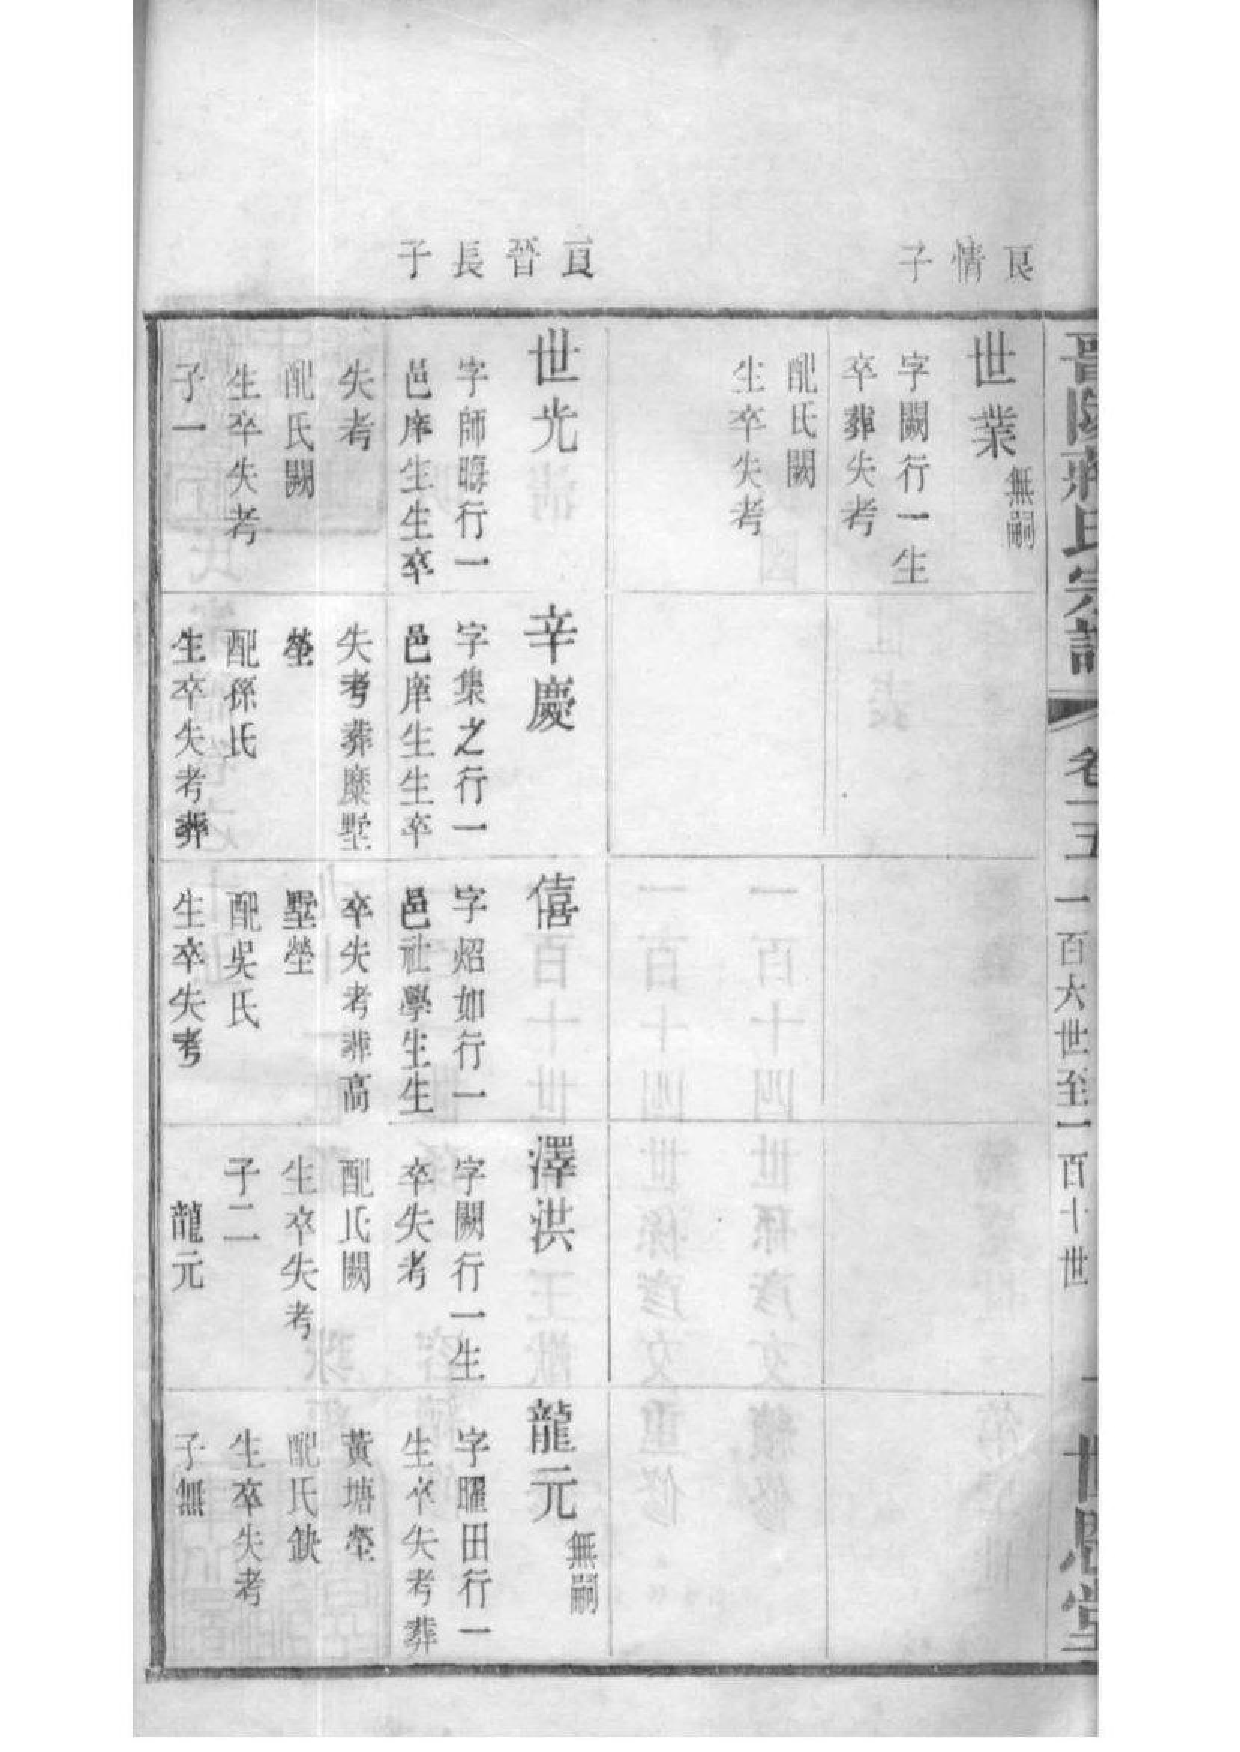 晉陵蔣氏宗譜
卷十五
一百六世至一百十世
一
世恩堂
良情子
世業
無嗣
字闕行一生
卒葬失考
配氏闕
生卒失考
良晉長子
世光
字師晦行一
邑庠生生卒
失考
配氏闕
生卒失考
子一
辛慶
字集之行一
邑庠生生卒
失考葬麋墅
塋
配孫氏
生卒失考葬
僖
字炤如行一
邑社學生生
卒失考葬高
墅塋
配吳氏
生卒失考
澤洪
字闕行一生
卒失考
配氏闕
生卒失考
子二
龍元
龍元
無嗣
字曜田行一
生卒失考葬
黃塘塋
配氏缺
生卒失考
子無